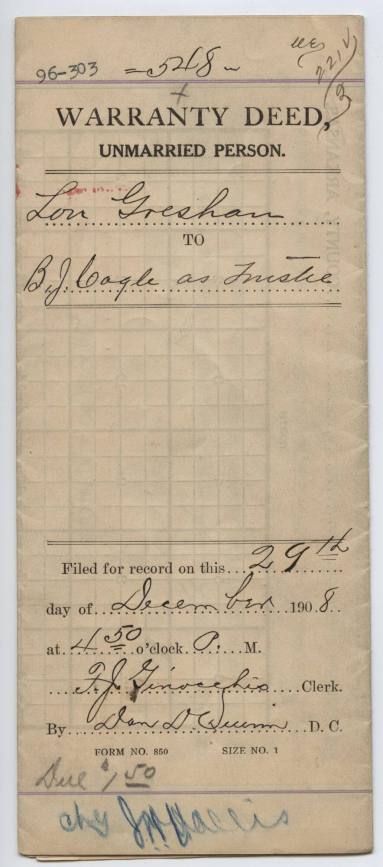 96-303 = 548 -
221
WARRANTY DEED,
UNMARRIED PERSON.
Lon Gresham
TO
B. J. Cagle as Trustee
Filed for record on this 29th
day of December 1908.
at 4 50 o'clock P. M.
F. J. Ginocchio Clerk.
By Dan D. Quinn D. C.
FORM NO. 850 SIZE NO. 1
Due $1 50
chg J W Wallis